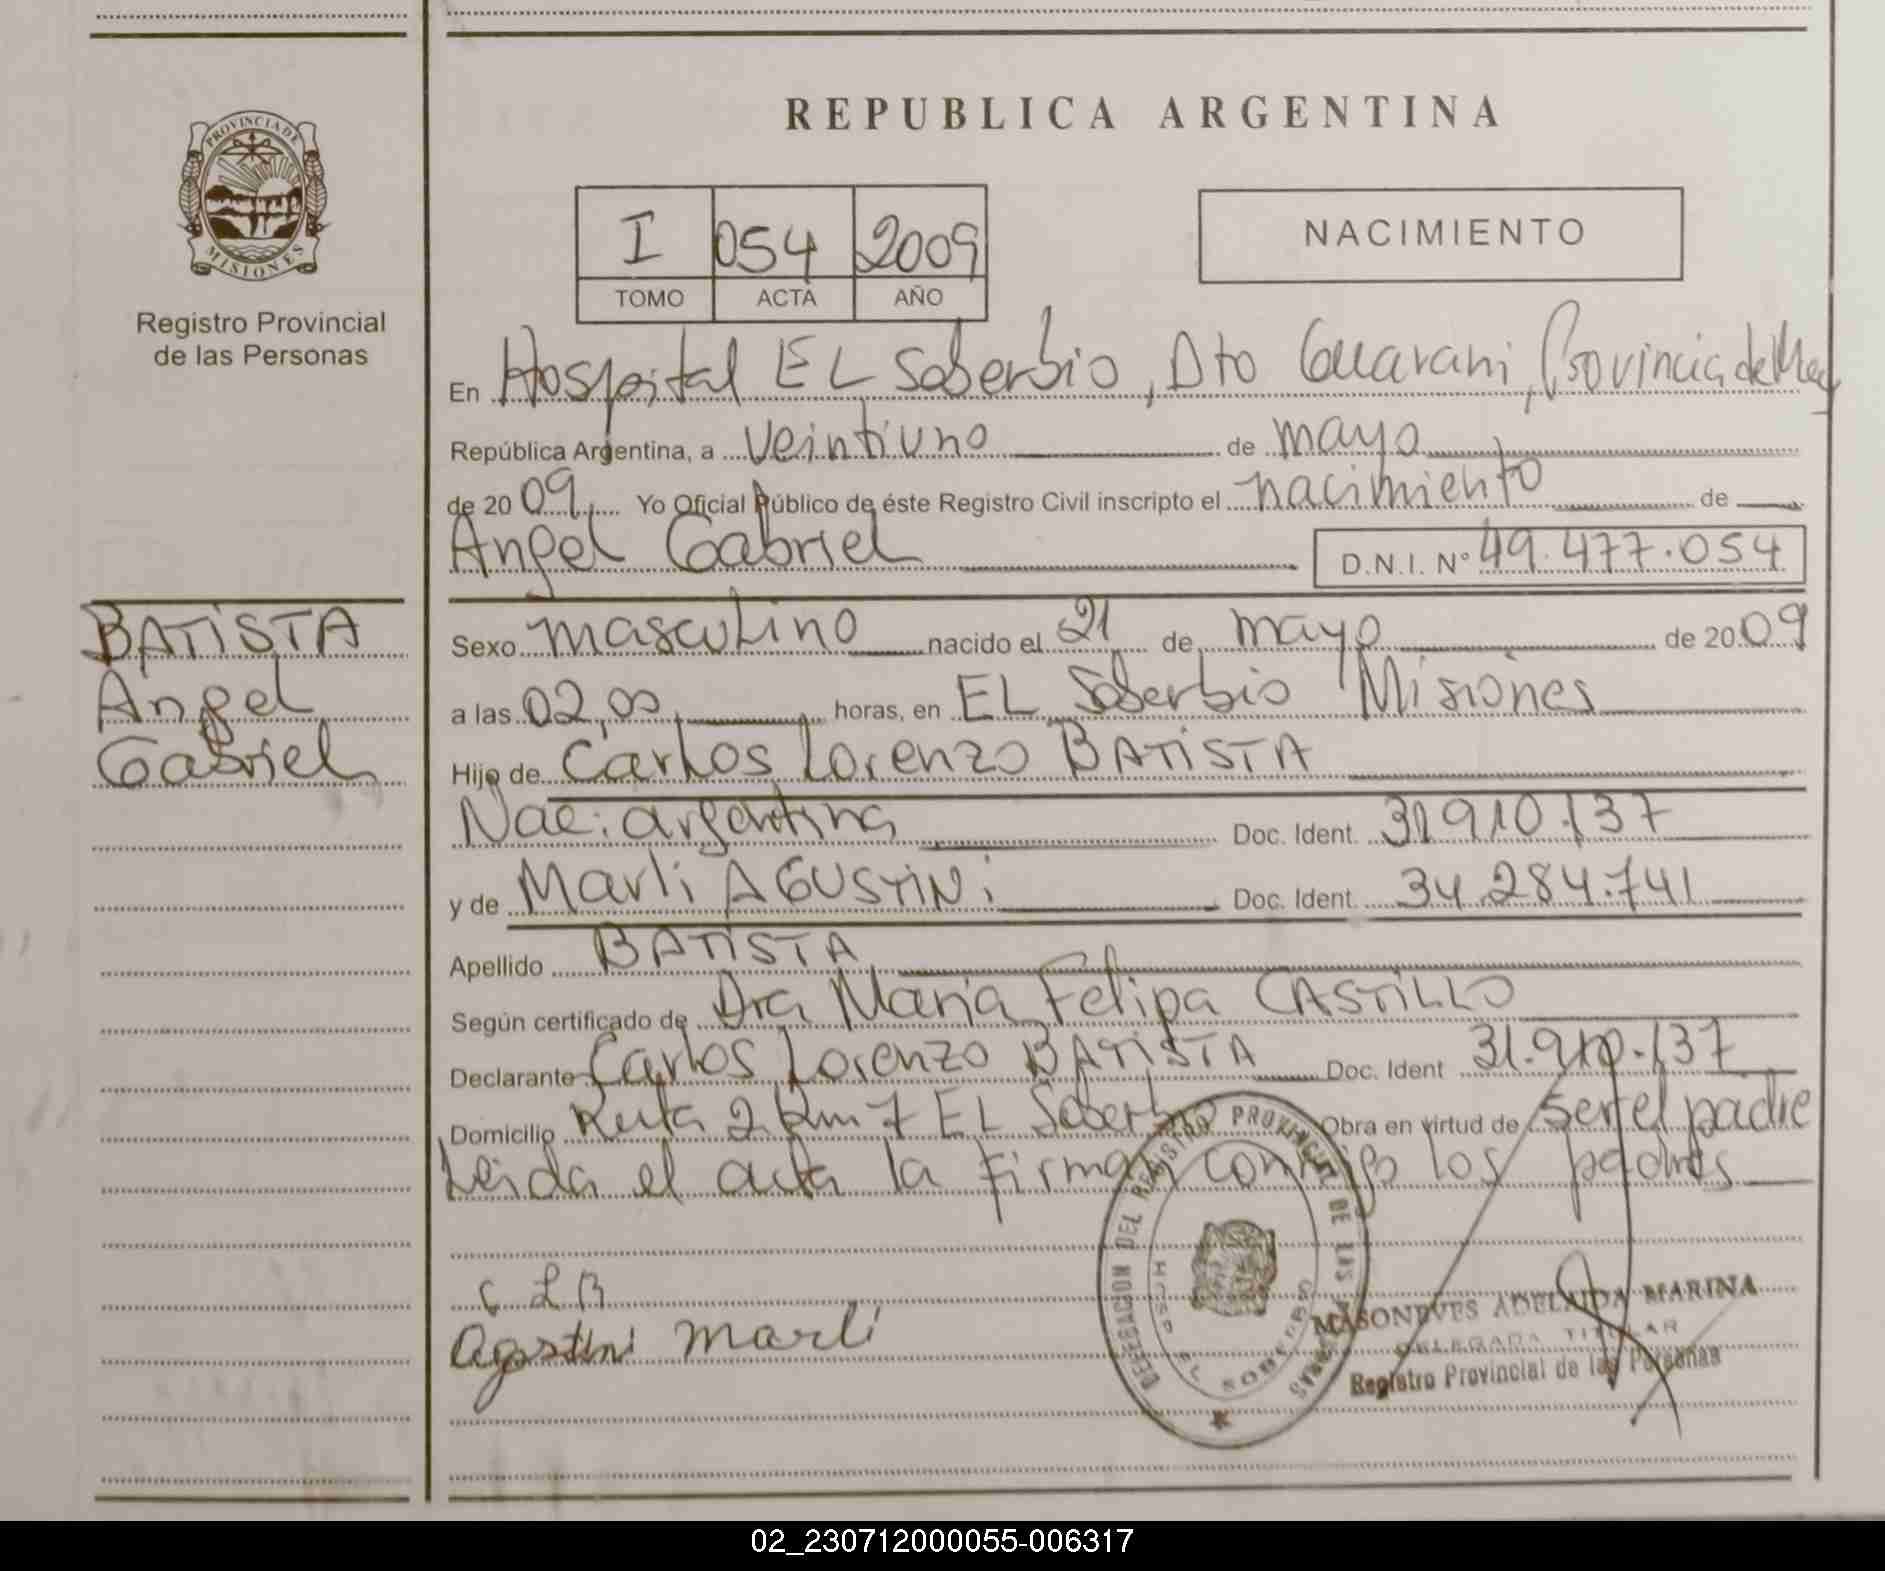 REPUBLICA ARGENTINA
PROVINCIA DE
MISIONES
Registro Provincial
de las Personas
I 054 2009
TOMO ACTA AÑO
NACIMIENTO
En Hospital EL Soberbio, Dto Guarani, Provincia de
República Argentina, a veintiuno de mayo
de 2009 Yo Oficial Público de éste Registro Civil inscripto el nacimiento de
Angel Gabriel D.N.I. Nº 49.477.054
BATISTA
Angel
Gabriel
Sexo masculino nacido el 21 de mayo de 2009
a las 02,00 horas, en EL Soberbio Misiones
Hijo de Carlos Lorenzo BATISTA
Nac: argentina Doc. Ident. 31.910.137
y de Marli AGUSTINi Doc. Ident. 34.284.741
Apellido BATISTA
Según certificado de Dra Maria Felipa CASTILLO
Declarante Carlos Lorenzo BATISTA Doc. Ident 31.910.137
Domicilio Ruta 2 Km 7 EL Soberbio Obra en virtud de ser el padre
Leida el acta la firman conmigo los padres
C L B
Agostini Marli
DELEGACION DEL REGISTRO PROVINCIAL DE LAS PERSONAS
HOSP EL SOBERBIO
MASONEVES ADELAIDA MARINA
DELEGADA TITULAR
Registro Provincial de las Personas
02_230712000055-006317